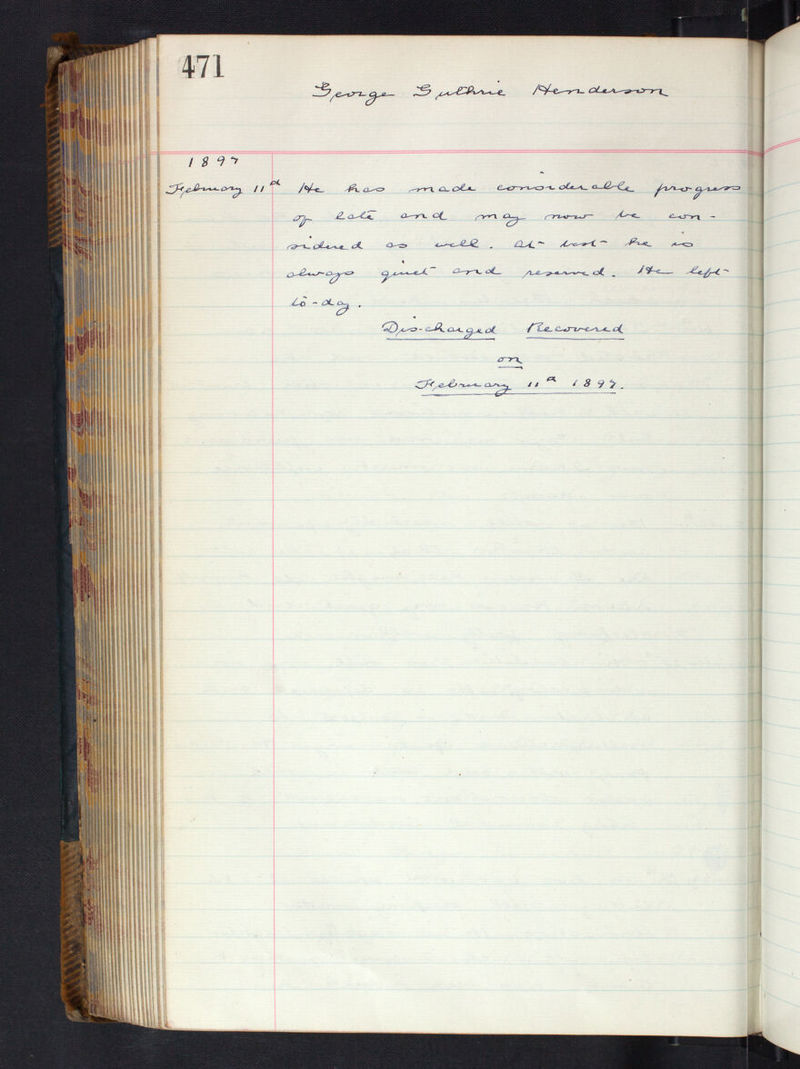 471
George Guthrie Henderson
1897
February 11th He has made considerable progress
of late and may now be con-
sidered as well. At best he is
always quiet and reserved. He left
to-day.
Discharged Recovered
on
February 11th 1897.